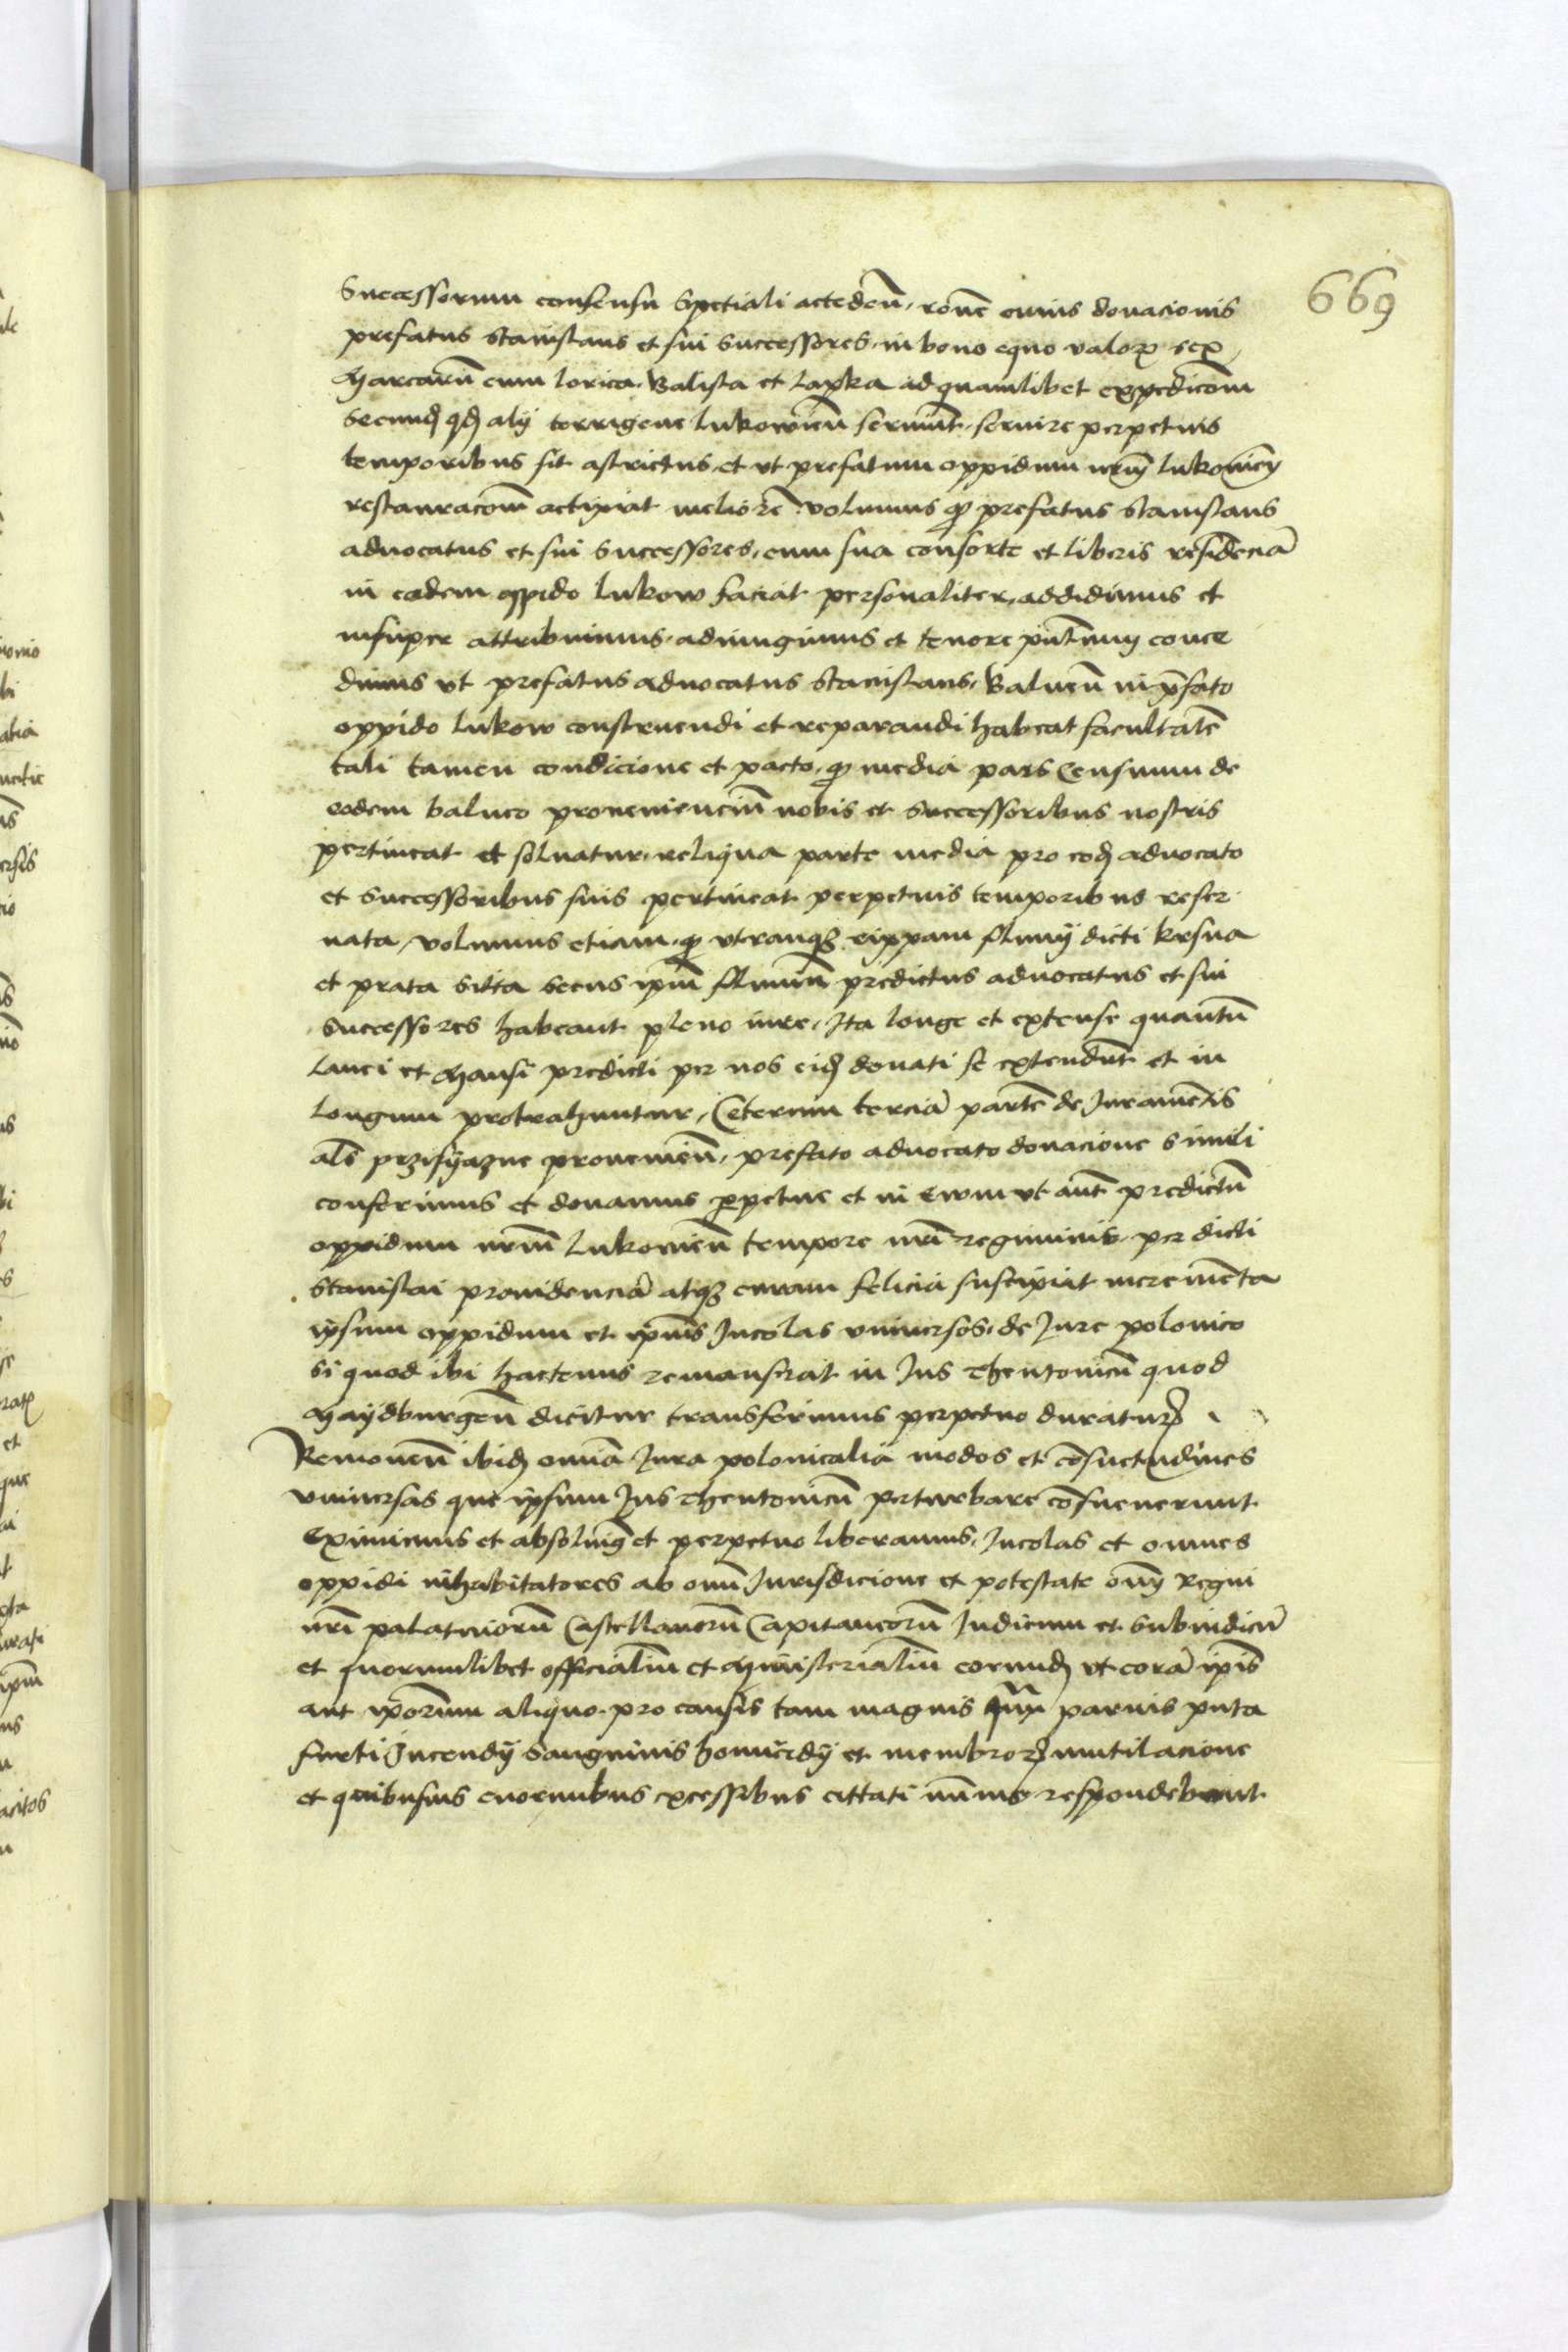 669
Successorum consensu Spetiali actedeñ, roñe cuius donacionis
prefatus Stanislaus et sui Successores, in bono equo valorꝝ sex
Marcarũ cum lorica, Balista et Lapka ad quamlibet expedicoñ
Secundꝫ qđ alij terrigene Lukowieñ seruiũt, seruire perpetuis
temporibus sit astrictus, et vt prefatum oppidum nr̃m lukowieñ
restauracoñ actipiat meliorẽ volumus qꝫ prefatus Stanislaus
aduocatus et sui Successores, cum sua consorte et liberis residenciã
in eodem oppido Lukow faciat personaliter, addidimus et
insuper attribuimus, adiungimus et tenore pñtium conce
dimus vt prefatus aduocatus Stanislaus, Balneũ in p̃fato
oppido Lukow construendi et reparandi habeat facultatẽ
tali tamen condicione et pacto, qꝫ media pars Censuum de
eodem balneo prouenienciũ nobis et Successoribus nostris
pertineat et soluatur, reliqua parte media pro eodꝫ aduocato
et Successoribus suis pertineat perpetuis temporibus reser
uata, volumus etiam, qꝫ vtranqꝫ rippam fluuij dicti krsna
et prata sitta secus ip̃m fluuiũ predictus aduocatus et sui
Successores habeant pleno iure, Ita longe et extense quantũ
Lanei et Mansi predicti per nos eidꝫ donati se extendũt et in
longum protrahuntur, Ceterum terciã partẽ de Iuramẽtis
als̃ przisyazne proueniẽñ, prefato aduocato donacione simili
conferimus et donamus perpetue et in Ewum vt aũt predictũ
oppidum nr̃m Lukowieñ tempore nr̃i regiminis, per dicti
Stanislai prouidenciã atqꝫ curam felicia suscipiat incremẽta
ipsum oppidum et ip̃ius Incolas vniuersos, de Iure polonico
si quod ibi hactenus remanserat in Ius Theutonicũ quod
Maydburgeñ dicitur transferimus perpetuo duraturꝝ
Remoueñ ibidꝫ om̃ia Iura polonicalia modos et cõsuetudines
vniuersas que ipsum Ius Theutonicũ perturbare cõsueuerunt
Eximimus et absoluimꝰ et perpetuo liberamus, Incolas et omnes
oppidi inhabitatores ab om̃i Iurisdicione et potestate om̃ Regni
nr̃i palatinorũ Castellanorũ Capitaneorũ Iudicum et Subiudicũ
et quorumlibet officialiũ et Ministerialiũ eorundꝫ vt corã ip̃is
aut ip̃orum aliquo, pro causis tam magnis qm̃ paruis puta
furti Incendij Sanguinis homicidij et membrorꝝ mutilacione
et quibusuis enormibus excessibus cittati mĩme respondebunt